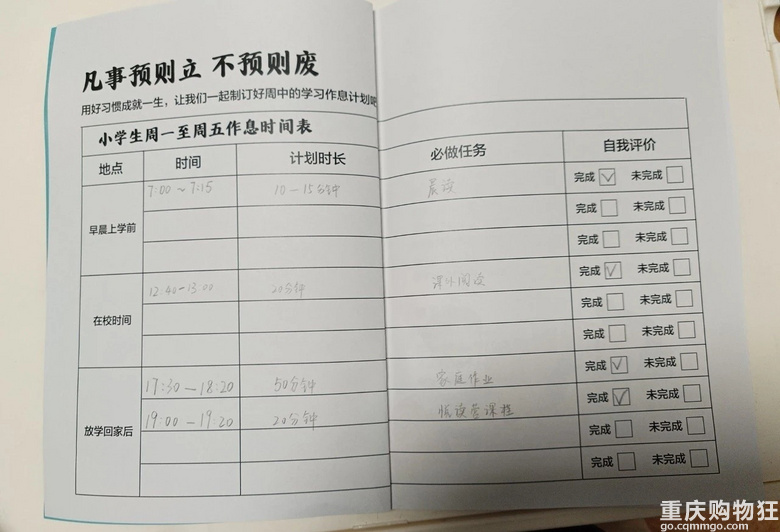 凡事预则立 不预则废
用好习惯成就一生，让我们一起制订好周中的学习作息计划吧
小学生周一至周五作息时间表
地点 时间 计划时长 必做任务 自我评价
早晨上学前 7:00～7:15 10—15分钟 晨读 完成 ✓ 未完成
完成 未完成
完成 未完成
在校时间 12:40—13:00 20分钟 课外阅读 完成 ✓ 未完成
完成 未完成
完成 未完成
放学回家后 17:30—18:20 50分钟 家庭作业 完成 ✓ 未完成
19:00—19:20 20分钟 悦读营课程 完成 ✓ 未完成
完成 未完成
完成 未完成
重庆购物狂
go.cqmmgo.com